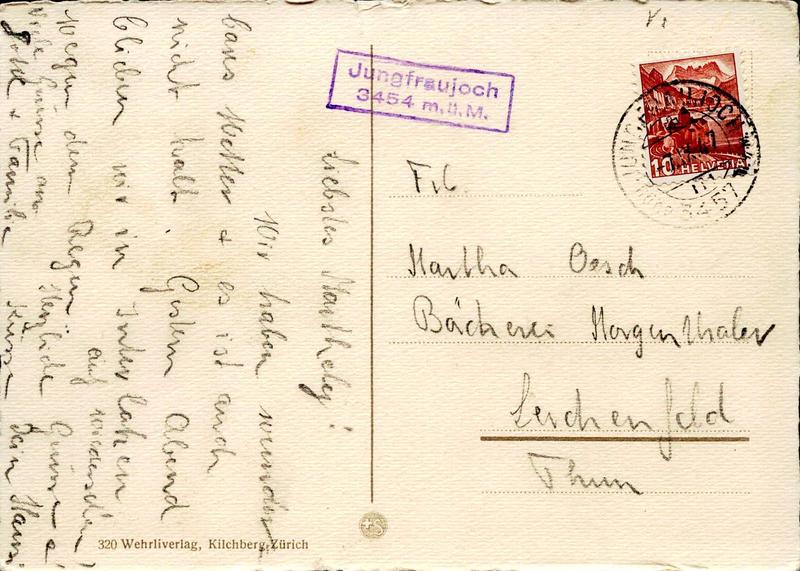 Jungfraujoch
3454 m.ü.M.
10 HELVETIA
JUNGFRAUJOCH
3457
Frl.
Martha Oesch
Bäckerei Morgenthaler
Lerchenfeld
Thun
Liebstes Marthely!
Wir haben wunder-
bares Wetter & es ist auch
nicht kalt. Gestern Abend
blieben wir in Interlaken
wegen dem Regen auf wiedersehen!
Viele Grüsse an Herzliche Grüsse &
Gotte & Familie Küsse Dein Hans
320 Wehrliverlag, Kilchberg-Zürich